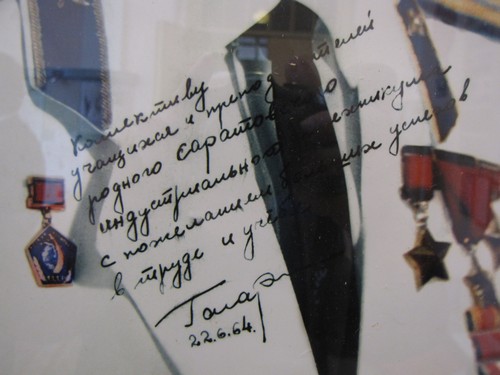 Коллективу
учащихся и преподавателей
родного саратовского
индустриального техникума
с пожеланием больших успехов
в труде и учёбе
Гагарин
22.6.64.